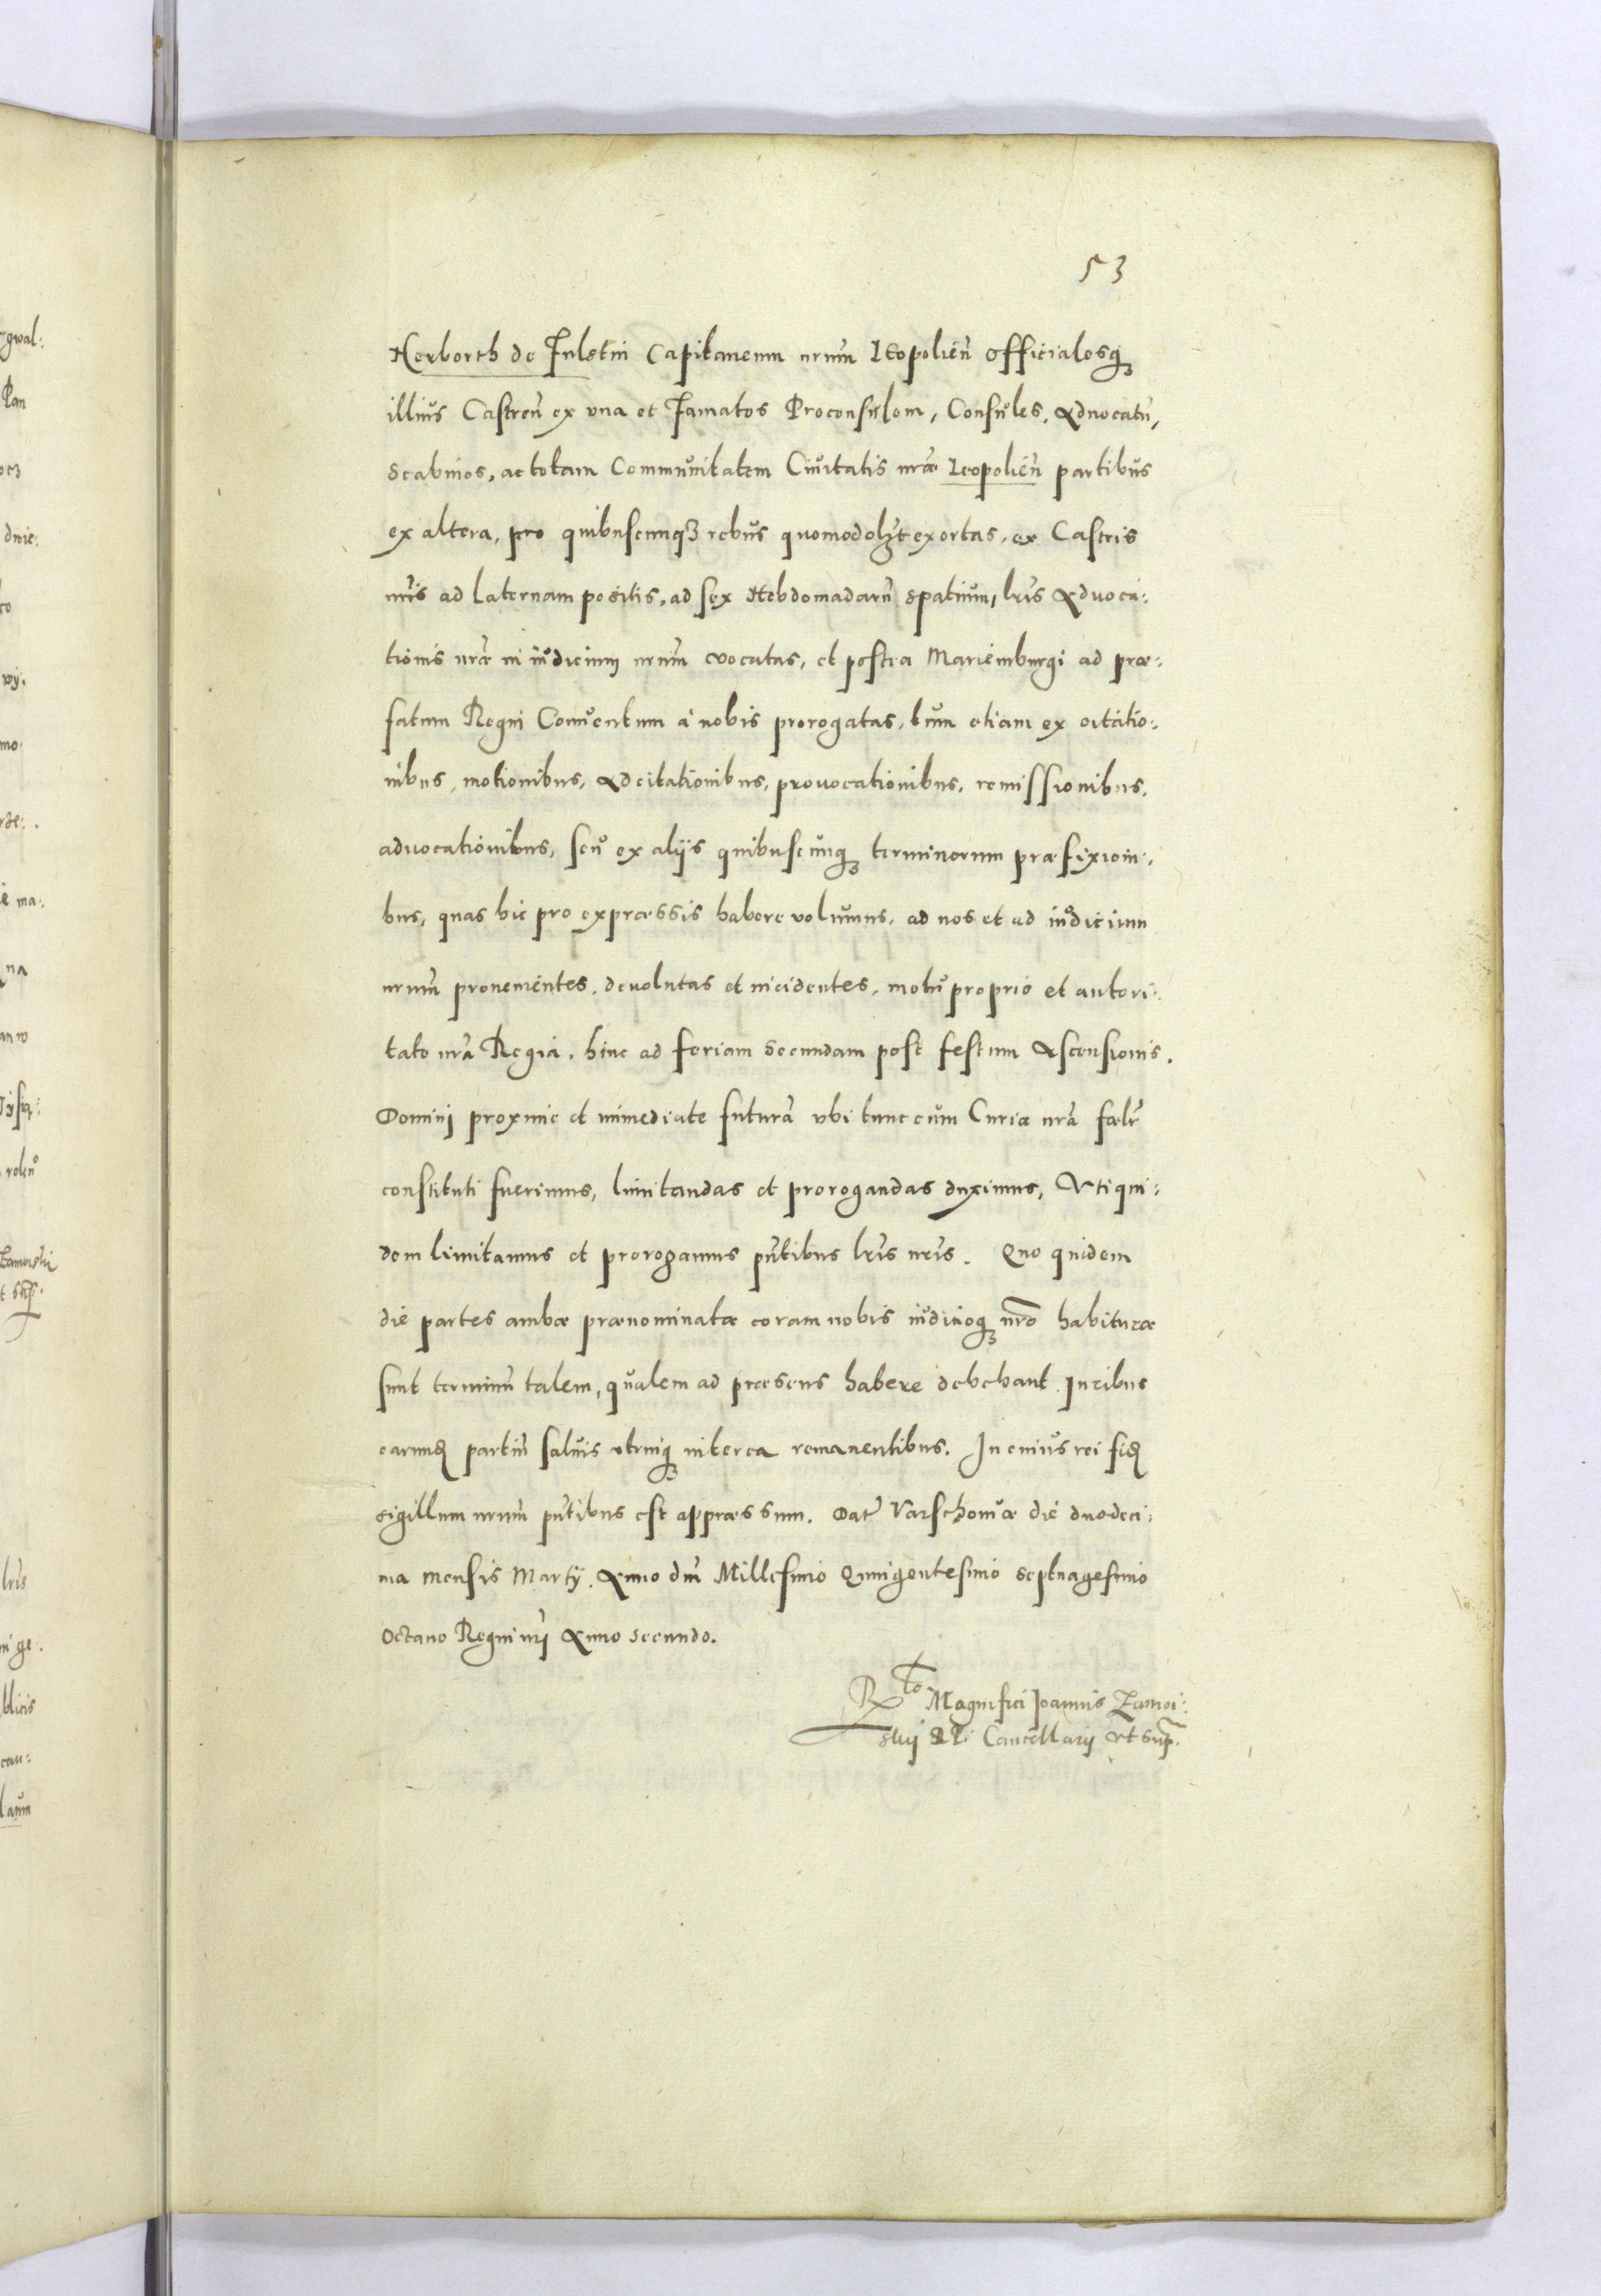 53
Herborth de Fulstin Capitaneum nrum Leopolien̄ Officialesq₃
illius Castren̄ ex vna et Famatos Proconsulem, Consules, Aduocatū,
Scabinos, ac totam Communitatem Ciuitatis nrae Leopolien̄ partibus
ex altera, pro quibuscunq₃ rebus quomodolz̄t exortas, ex Castris
nr̄is ad Laternam positis, ad sex Hebdomadarū spatium, lr̄is Aduoca:
tionis nr̄ae in iudicium nrum vocatas, et postea Mariemburgi ad prae:
fatum Regni Conuentum à nobis prorogatas, tum etiam ex citatio:
nibus, motionibus, Adcitationibus, prouocationibus, remissionibus,
aduocationibus, seu ex alijs quibuscunq₃ terminorum praefixioni:
bus, quas hic pro expraessis habere volumus, ad nos et ad iudicium
nrum prouenientes, deuolutas et incidentes, motu proprio et autori:
tate nr̄a Regia, hinc ad feriam Secundam post festum Ascensionis
Domini proxime et immediate futurā vbi tunc cum Curia nr̄a faelr̄
constituti fuerimus, limitandas et prorogandas duximus, Vti qui:
dem limitamus et prorogamus pn̄tibus lr̄is nr̄is. Quo quidem
die partes ambae praenominatae coram nobis iudicioq₃ nr̄o habiturae
sunt terminū talem, qualem ad praesens habere debebant. Iuribus
earund partiū saluis vtrinq₃ interea remanentibus. In cuius rei fid
sigillum nrum pn̄tibus est appraessum. Dat̄ Varschouiae die duodeci:
ma mensis Martij. Anno dn̄i Millesimo Quingentesimo Septuagesimo
Octauo Regni nr̄i Anno Secundo.
R̲to Magnifici Ioannis Zamoi:
skij R P. Cancellarij vt sup.